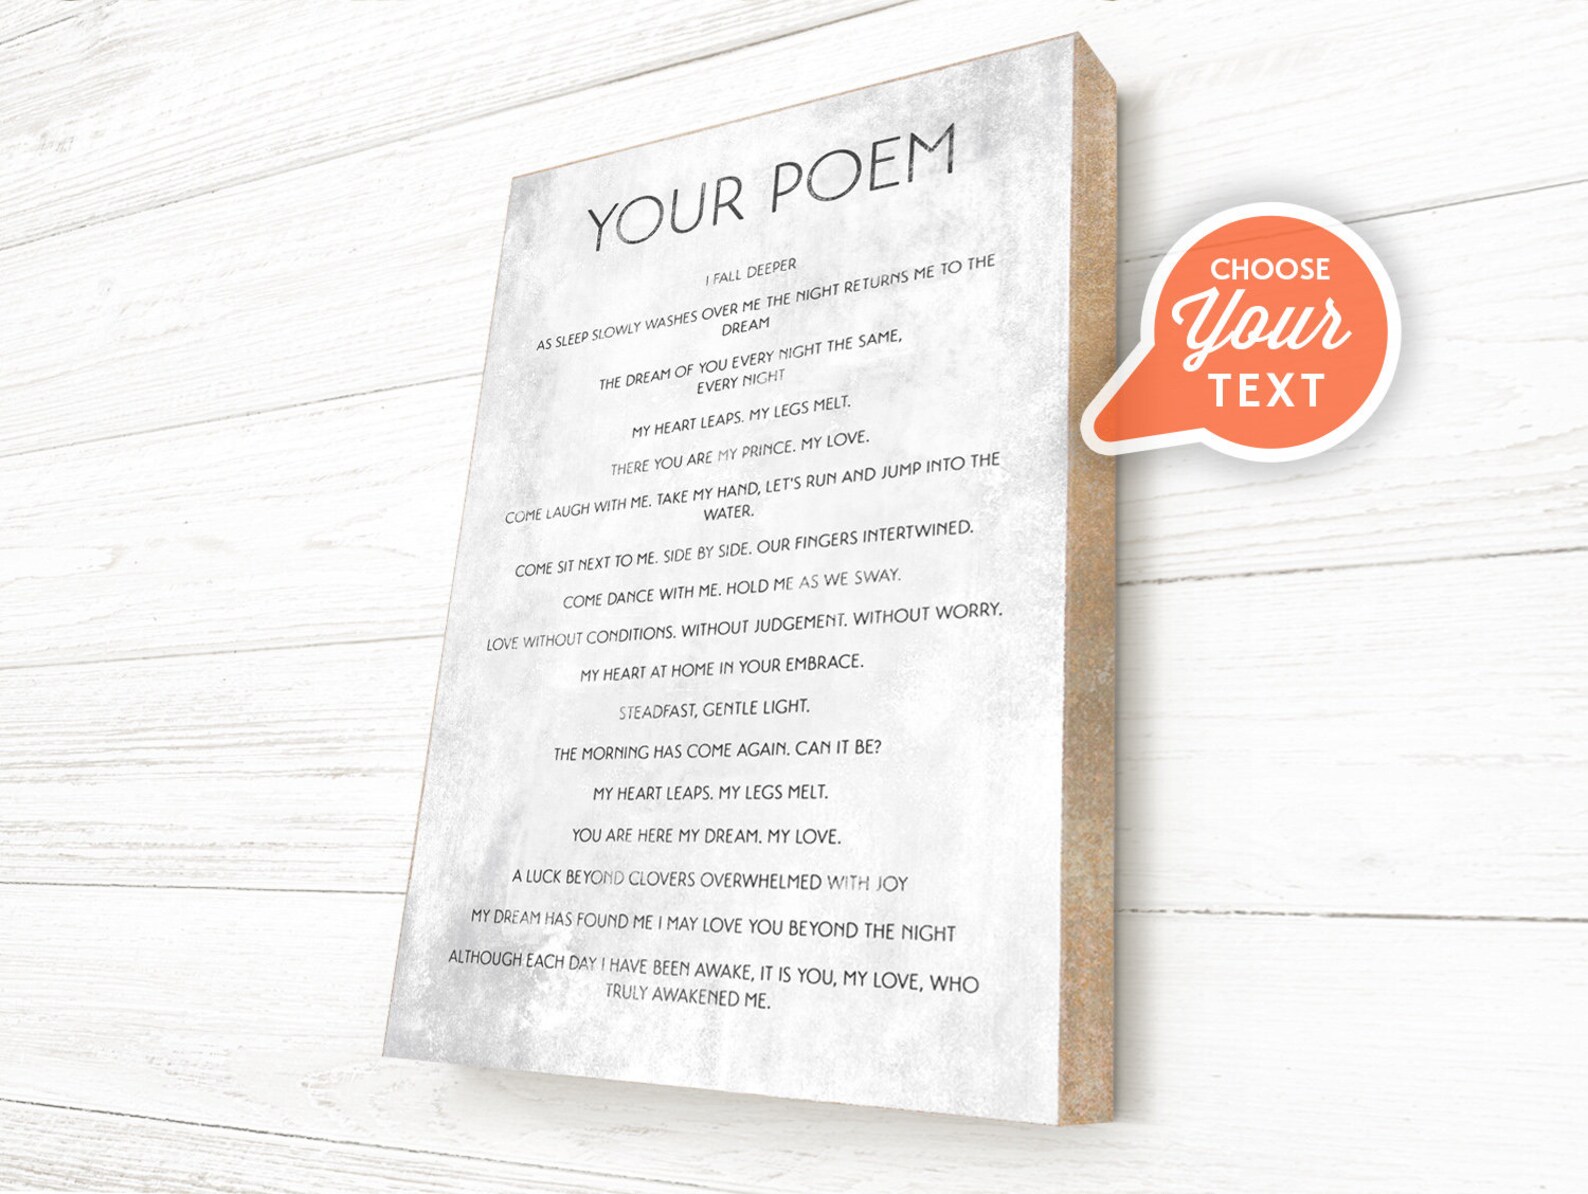 YOUR POEM
I FALL DEEPER
AS SLEEP SLOWLY WASHES OVER ME THE NIGHT RETURNS ME TO THE
DREAM
THE DREAM OF YOU EVERY NIGHT THE SAME,
EVERY NIGHT
MY HEART LEAPS. MY LEGS MELT.
THERE YOU ARE MY PRINCE. MY LOVE.
COME LAUGH WITH ME. TAKE MY HAND, LET'S RUN AND JUMP INTO THE
WATER.
COME SIT NEXT TO ME. SIDE BY SIDE. OUR FINGERS INTERTWINED.
COME DANCE WITH ME. HOLD ME AS WE SWAY.
LOVE WITHOUT CONDITIONS. WITHOUT JUDGEMENT. WITHOUT WORRY.
MY HEART AT HOME IN YOUR EMBRACE.
STEADFAST, GENTLE LIGHT.
THE MORNING HAS COME AGAIN. CAN IT BE?
MY HEART LEAPS. MY LEGS MELT.
YOU ARE HERE MY DREAM. MY LOVE.
A LUCK BEYOND CLOVERS OVERWHELMED WITH JOY
MY DREAM HAS FOUND ME I MAY LOVE YOU BEYOND THE NIGHT
ALTHOUGH EACH DAY I HAVE BEEN AWAKE, IT IS YOU, MY LOVE, WHO
TRULY AWAKENED ME.
CHOOSE
Your
TEXT